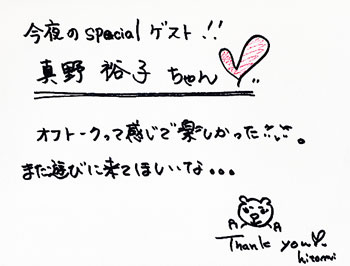 今夜のspecialゲスト!!
真野 裕子 ちゃん
オフトークって感じで楽しかった。
また遊びに来てほしいな...
Thank you
hitomi